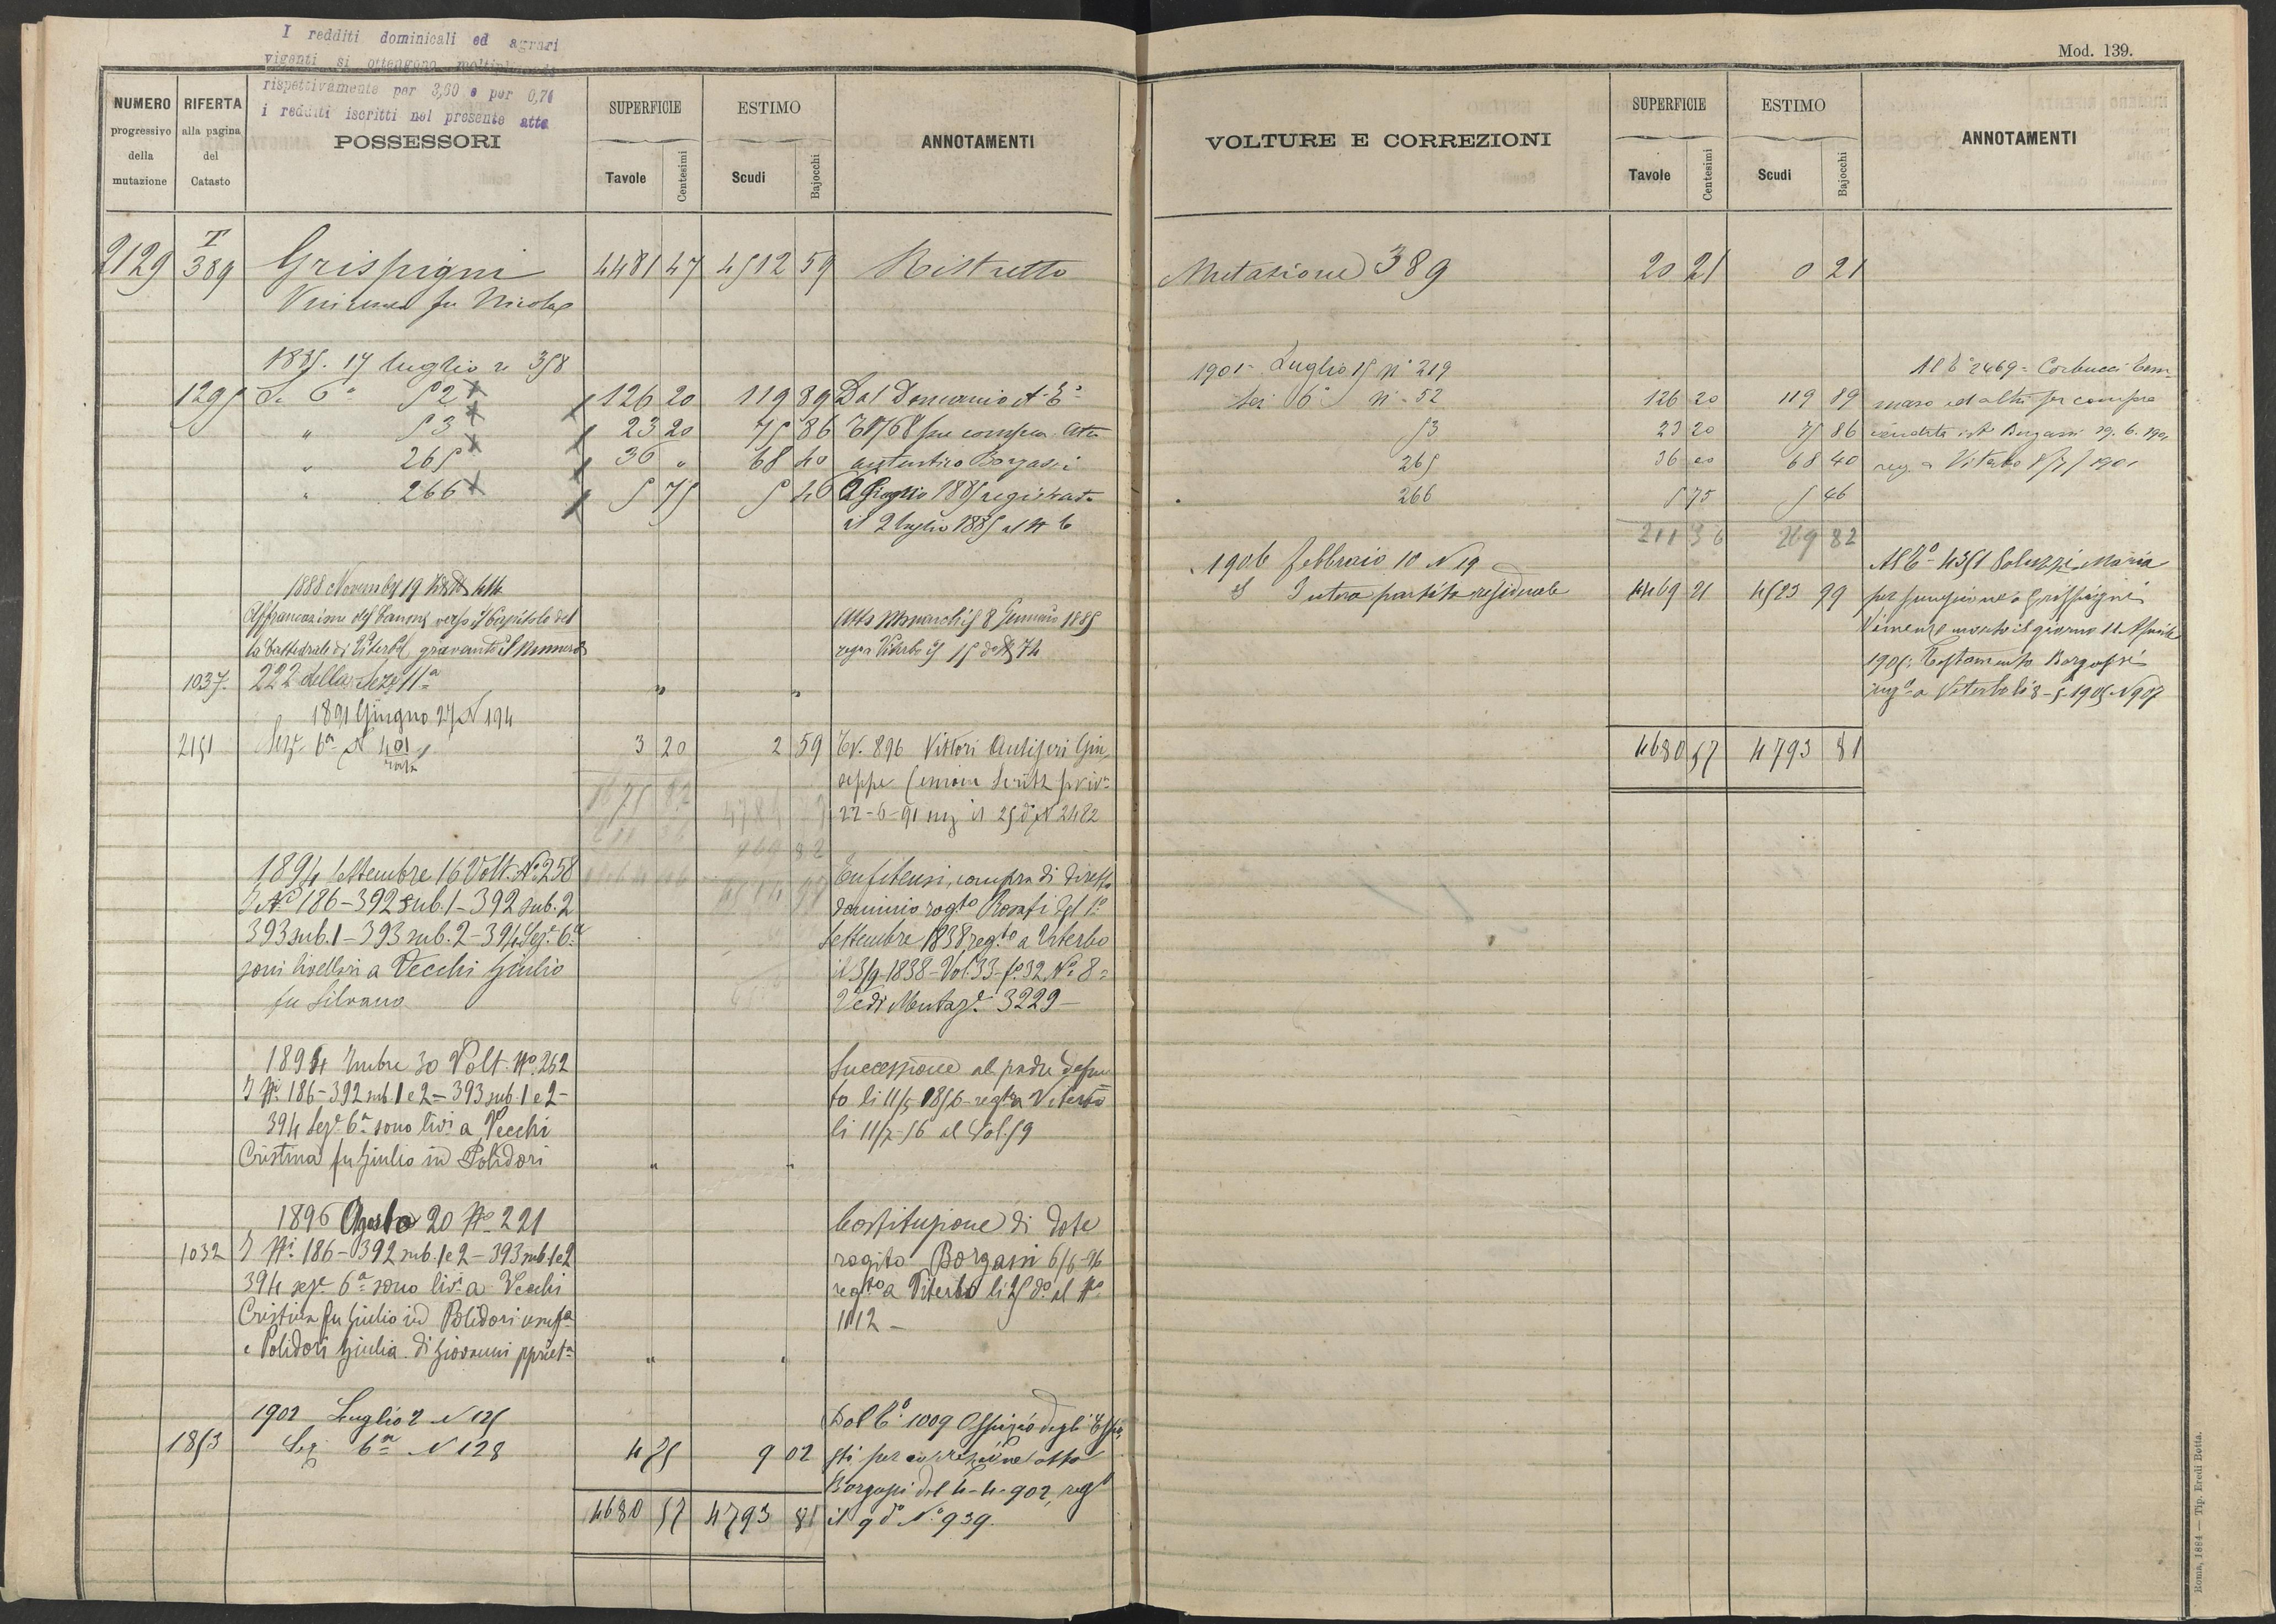 I redditi dominicali ed agrari
viganti si ottengono
rispettivamente per 3,60 e per 0,70
i redditi iscritti nel presente atto
Mod. 139.
NUMERO progressivo della mutazione
RIFERTA alla pagina del Catasto
POSSESSORI
SUPERFICIE Tavole Centesimi
ESTIMO Scudi Bajocchi
ANNOTAMENTI
2129 T 389 Grispigni 4481 47 4512 59 Ristretto
fu Nicola
1885. 17 luglio n 358
1295 Se 6a 52 126 20 119 89 Dal Demanio At Eo
" 53 23 20 75 86
" 265 36 " 68 40 autentico Borgassi
" 266 5 75 5 46 1885 registrato
il 2 luglio 1885 al N 6
1888 Novembre 19
Affrancazione del Canone verso il Capitolo del
la Cattedrale di Viterbo gravante il Numero
Atto Monarchi 8 Gennaio 1885
1037. 222 della Seze 11a " "
1891 Giugno 27 N 194
2151 Seze 6a N 401 3 20 2 59 896 Vittori Antiseri Giu
seppe
22-6-91 il 25 do N 2482
1894 Settembre 16 Volt. No 258
I Ni 186-392 sub. 1-392 sub. 2
393 sub. 1-393 sub. 2-394 Seze 6a
sono livellari a Vecchi Giulio
fu Silvano
Enfiteusi, compra di diretto
dominio rogto Rosati del 1o
Settembre 1838 regto a Viterbo
il 3/9-1838-Vol. 33-fo 32 No 8=
Vedi Mutaze 3229-
1894 30 Volt. No 262
I Ni 186-392 sub. 1 e 2-393 sub. 1 e 2-
394 Seze 6a sono livi a Vecchi
Cristina fu Giulio in Polidori " "
Successione al padre defun
to li 11/5 1856-regta a Viterbo
li 11/7-56 al Vol. 59
1896 Agosto 20 No 221
1032 I Ni 186-392 sub. 1 e 2-393 sub. 1 e 2
394 seze 6a sono livi a Vecchi
Cristina fu Giulio in Polidori usufa
e Polidori Giulia di Giovanni " "
Costituzione di dote
rogito Borgassi 6/6-96
regto a Viterbo li 25 do al No
1112-
1902 Luglio 2 N 125
1853 Sez 6a N 128 4 75 9 02
Dal Co 1009 Ospizio degli Espo
sti per correzione atto
Borgassi del 4-4-902, rego
il 9 do No 939.
4680 57 4793 81
VOLTURE E CORREZIONI
SUPERFICIE Tavole Centesimi
ESTIMO Scudi Bajocchi
ANNOTAMENTI
Mutazione 389 20 21 0 21
1901- Luglio 15 no 219
Sez 6a n- 52 126 20 119 89
53 23 20 75 86
265 36 20 68 40
266 5 75 5 46
211 36 269 82
Al Co 2469= Corbucci Tom=
maso ed altri per compra
vendita Borgassi 29. 6. 1901
reg. a Viterbo 1901
1906 febbraio 10 N 19
Intera partita residuale 4469 21 4523 99
Al Co 4351 Maria
per successione a Grispigni
morto il giorno 11 Aprile
1905: Testamento Borgassi
rego a Viterbo li 8-5-1905-N 907
4680 57 4793 81
Roma, 1884 — Tip. Eredi Botta.